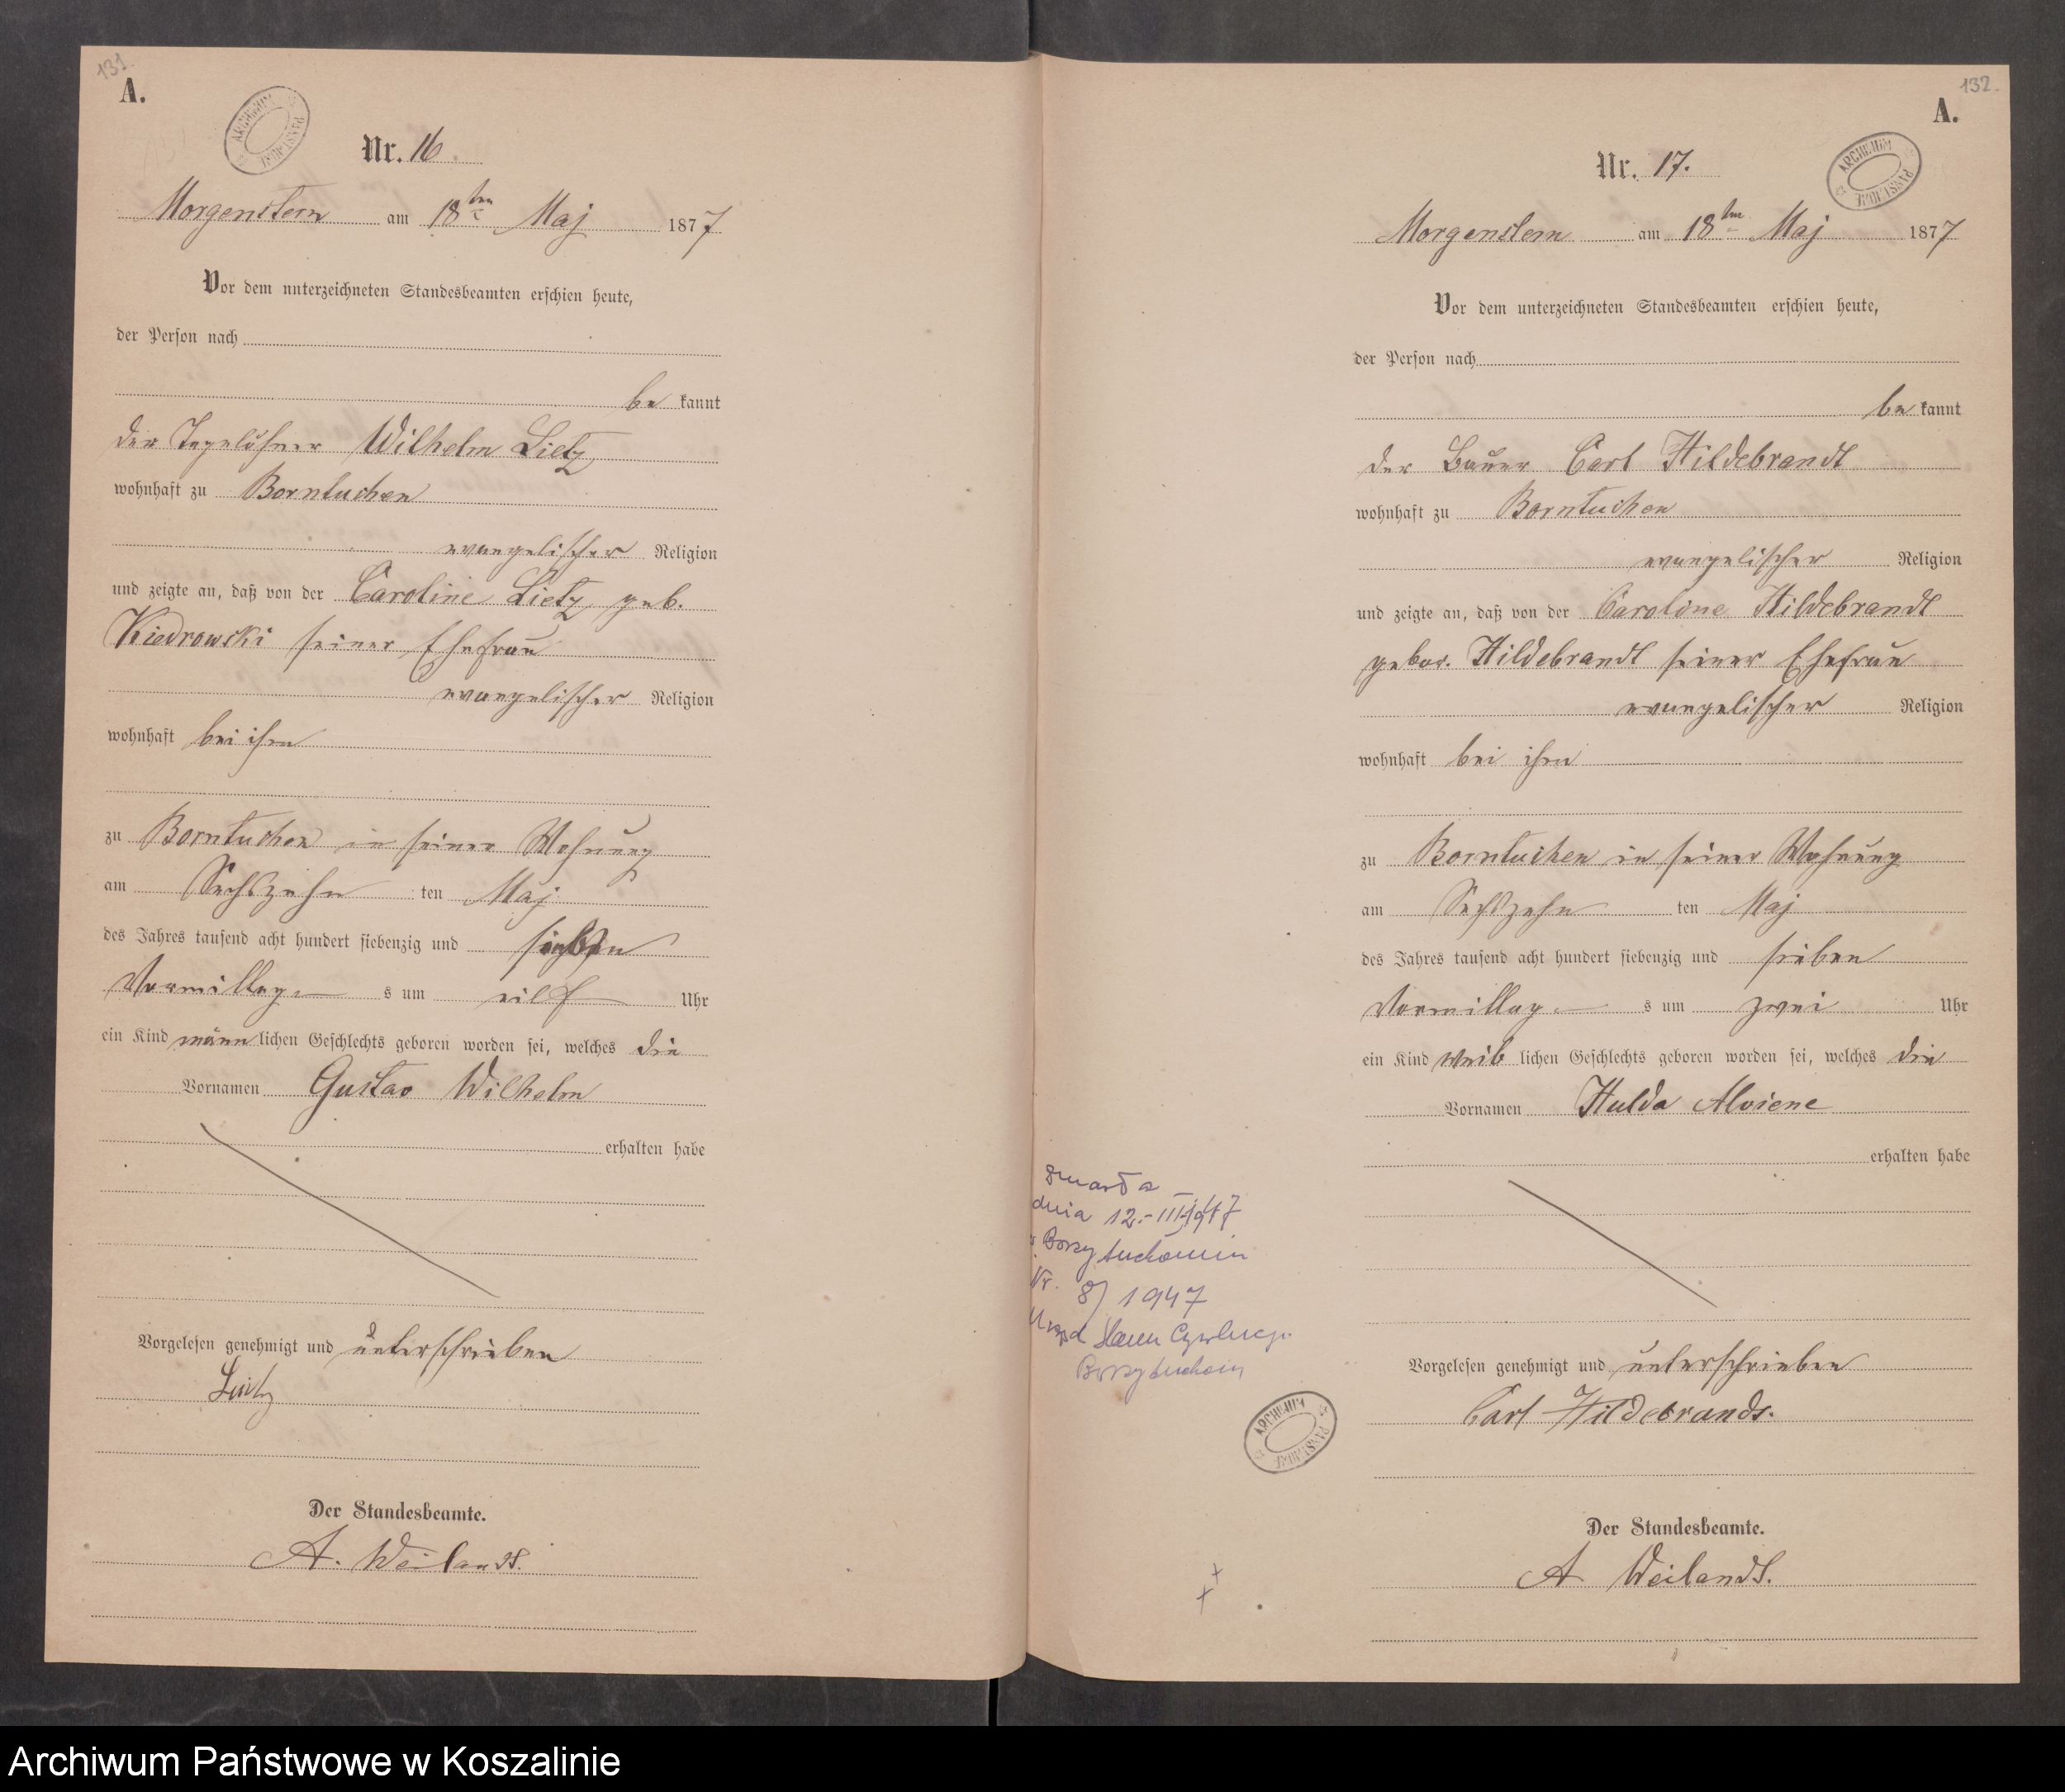 131.
A.
ARCHIWUM PAŃSTWOWE
Nr. 16
Morgenstern am 18ten Maj 1877
Vor dem unterzeichneten Standesbeamten erschien heute,
der Person nach
be kannt
der Tagelöhner Wilhelm Lietz
wohnhaft zu Borntuchen
evangelischer Religion
und zeigte an, daß von der Caroline Lietz geb.
Kiedrowski seiner Ehefrau
evangelischer Religion
wohnhaft bei ihm
zu Borntuchen in seiner Wohnung
am Sechszehn ten Maj
des Jahres tausend acht hundert siebenzig und sieben
Vormittag s um eilf Uhr
ein Kind männ lichen Geschlechts geboren worden sei, welches die
Vornamen Gustav Wilhelm
erhalten habe
Vorgelesen genehmigt und unterschrieben
Lietz
Der Standesbeamte.
A. Weilandt.
132.
A.
ARCHIWUM PAŃSTWOWE
Nr. 17.
Morgenstern am 18ten Maj 1877
Vor dem unterzeichneten Standesbeamten erschien heute,
der Person nach
be kannt
der Bauer Carl Hildebrandt
wohnhaft zu Borntuchen
evangelischer Religion
und zeigte an, daß von der Caroline Hildebrandt
gebor. Hildebrandt seiner Ehefrau
evangelischer Religion
wohnhaft bei ihm
zu Borntuchen in seiner Wohnung
am Sechszehn ten Maj
des Jahres tausend acht hundert siebenzig und sieben
Vormittag s um zwei Uhr
ein Kind weib lichen Geschlechts geboren worden sei, welches die
Vornamen Hulda Alviene
erhalten habe
Vorgelesen genehmigt und unterschrieben
Carl Hildebrandt.
Der Standesbeamte.
A Weilandt.
Zmarła
dnia 12.-III-1947
w. Borzytuchomiu
Nr. 8/1947
Urząd Stanu Cywilnego
Borzytuchom
ARCHIWUM PAŃSTWOWE
Archiwum Państwowe w Koszalinie